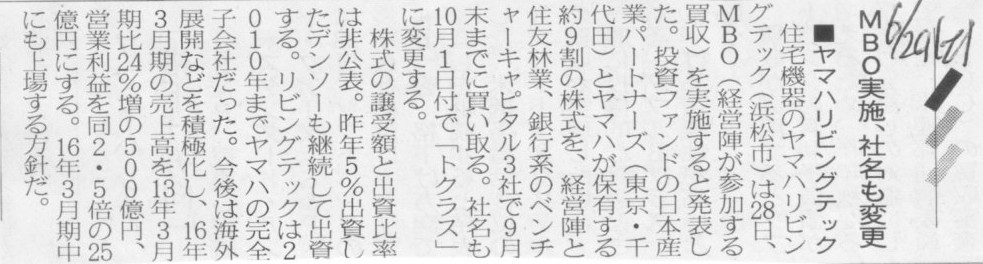 6/29(土)
MBO実施、社名も変更
■ヤマハリビングテック
住宅機器のヤマハリビン
グテック(浜松市)は28日、
MBO(経営陣が参加する
買収)を実施すると発表し
た。投資ファンドの日本産
業パートナーズ(東京・千
代田)とヤマハが保有する
約9割の株式を、経営陣と
住友林業、銀行系のベンチ
ャーキャピタル3社で9月
末までに買い取る。社名も
10月1日付で「トクラス」
に変更する。
株式の譲受額と出資比率
は非公表。昨年5%出資し
たデンソーも継続して出資
する。リビングテックは2
010年までヤマハの完全
子会社だった。今後は海外
展開などを積極化し、16年
3月期の売上高を13年3月
期比24%増の500億円、
営業利益を同2・5倍の25
億円にする。16年3月期中
にも上場する方針だ。